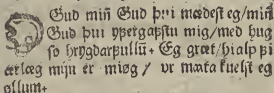 Gud miñ Gud þui mædest eg/miñ
Gud þui yfergafstu mig/med hug
so hrygdarfullū. Eg græt/hialp þi
ær læg mijn er miøg/ vr mata kuelst eg
øllum.